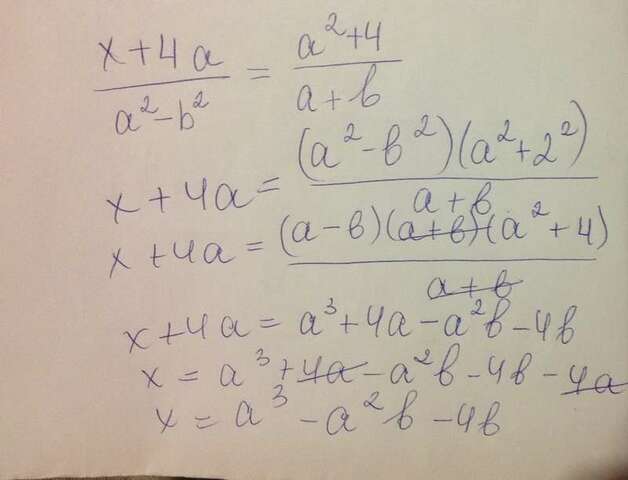 (x+4a)/(a²-b²) = (a²+4)/(a+b)
x+4a = ((a²-b²)(a²+2²))/(a+b)
x+4a = ((a-b)(a+b)(a²+4))/(a+b)
x+4a = a³+4a-a²b-4b
x = a³+4a-a²b-4b-4a
x = a³-a²b-4b